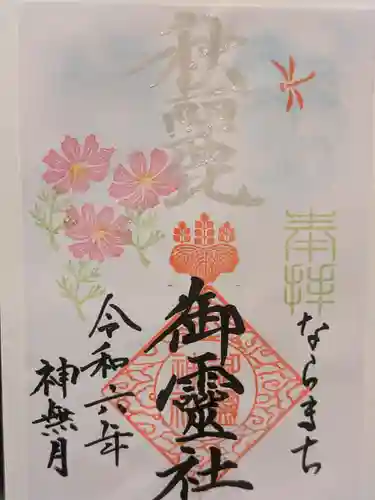 奉拝
ならまち
秋麗
御靈社
令和六年
神無月